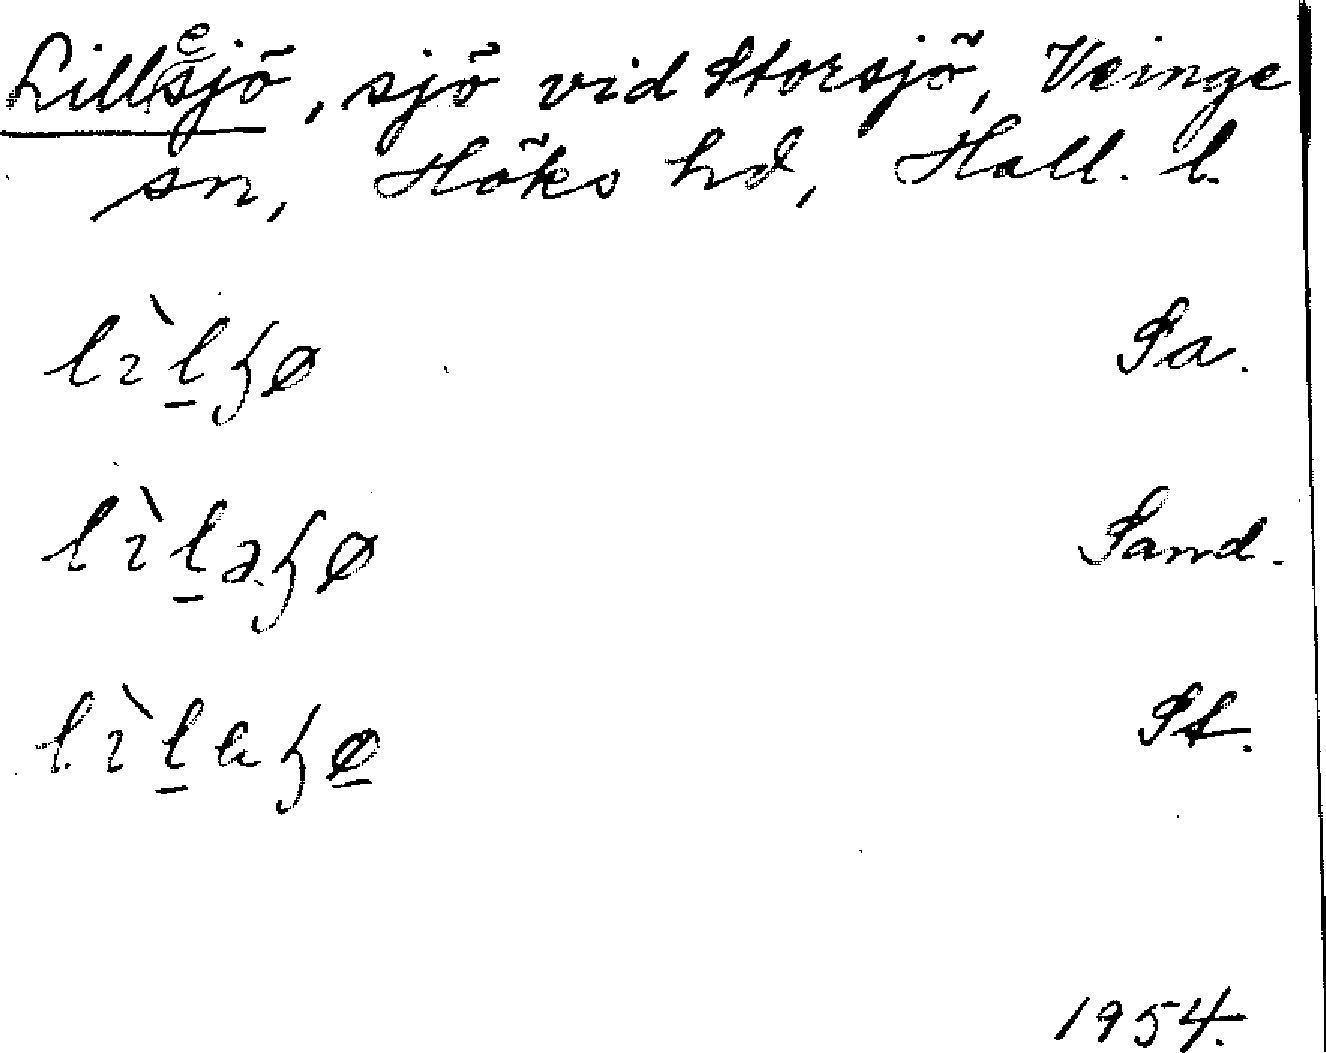 Lillesjö, sjö vid Storsjö, Veinge
sn, Höks hd, Hall. l.
lìl̠ɧø Sa.
lìl̠əɧø Sand.
lìl̠aɧø̠ St.
1954.